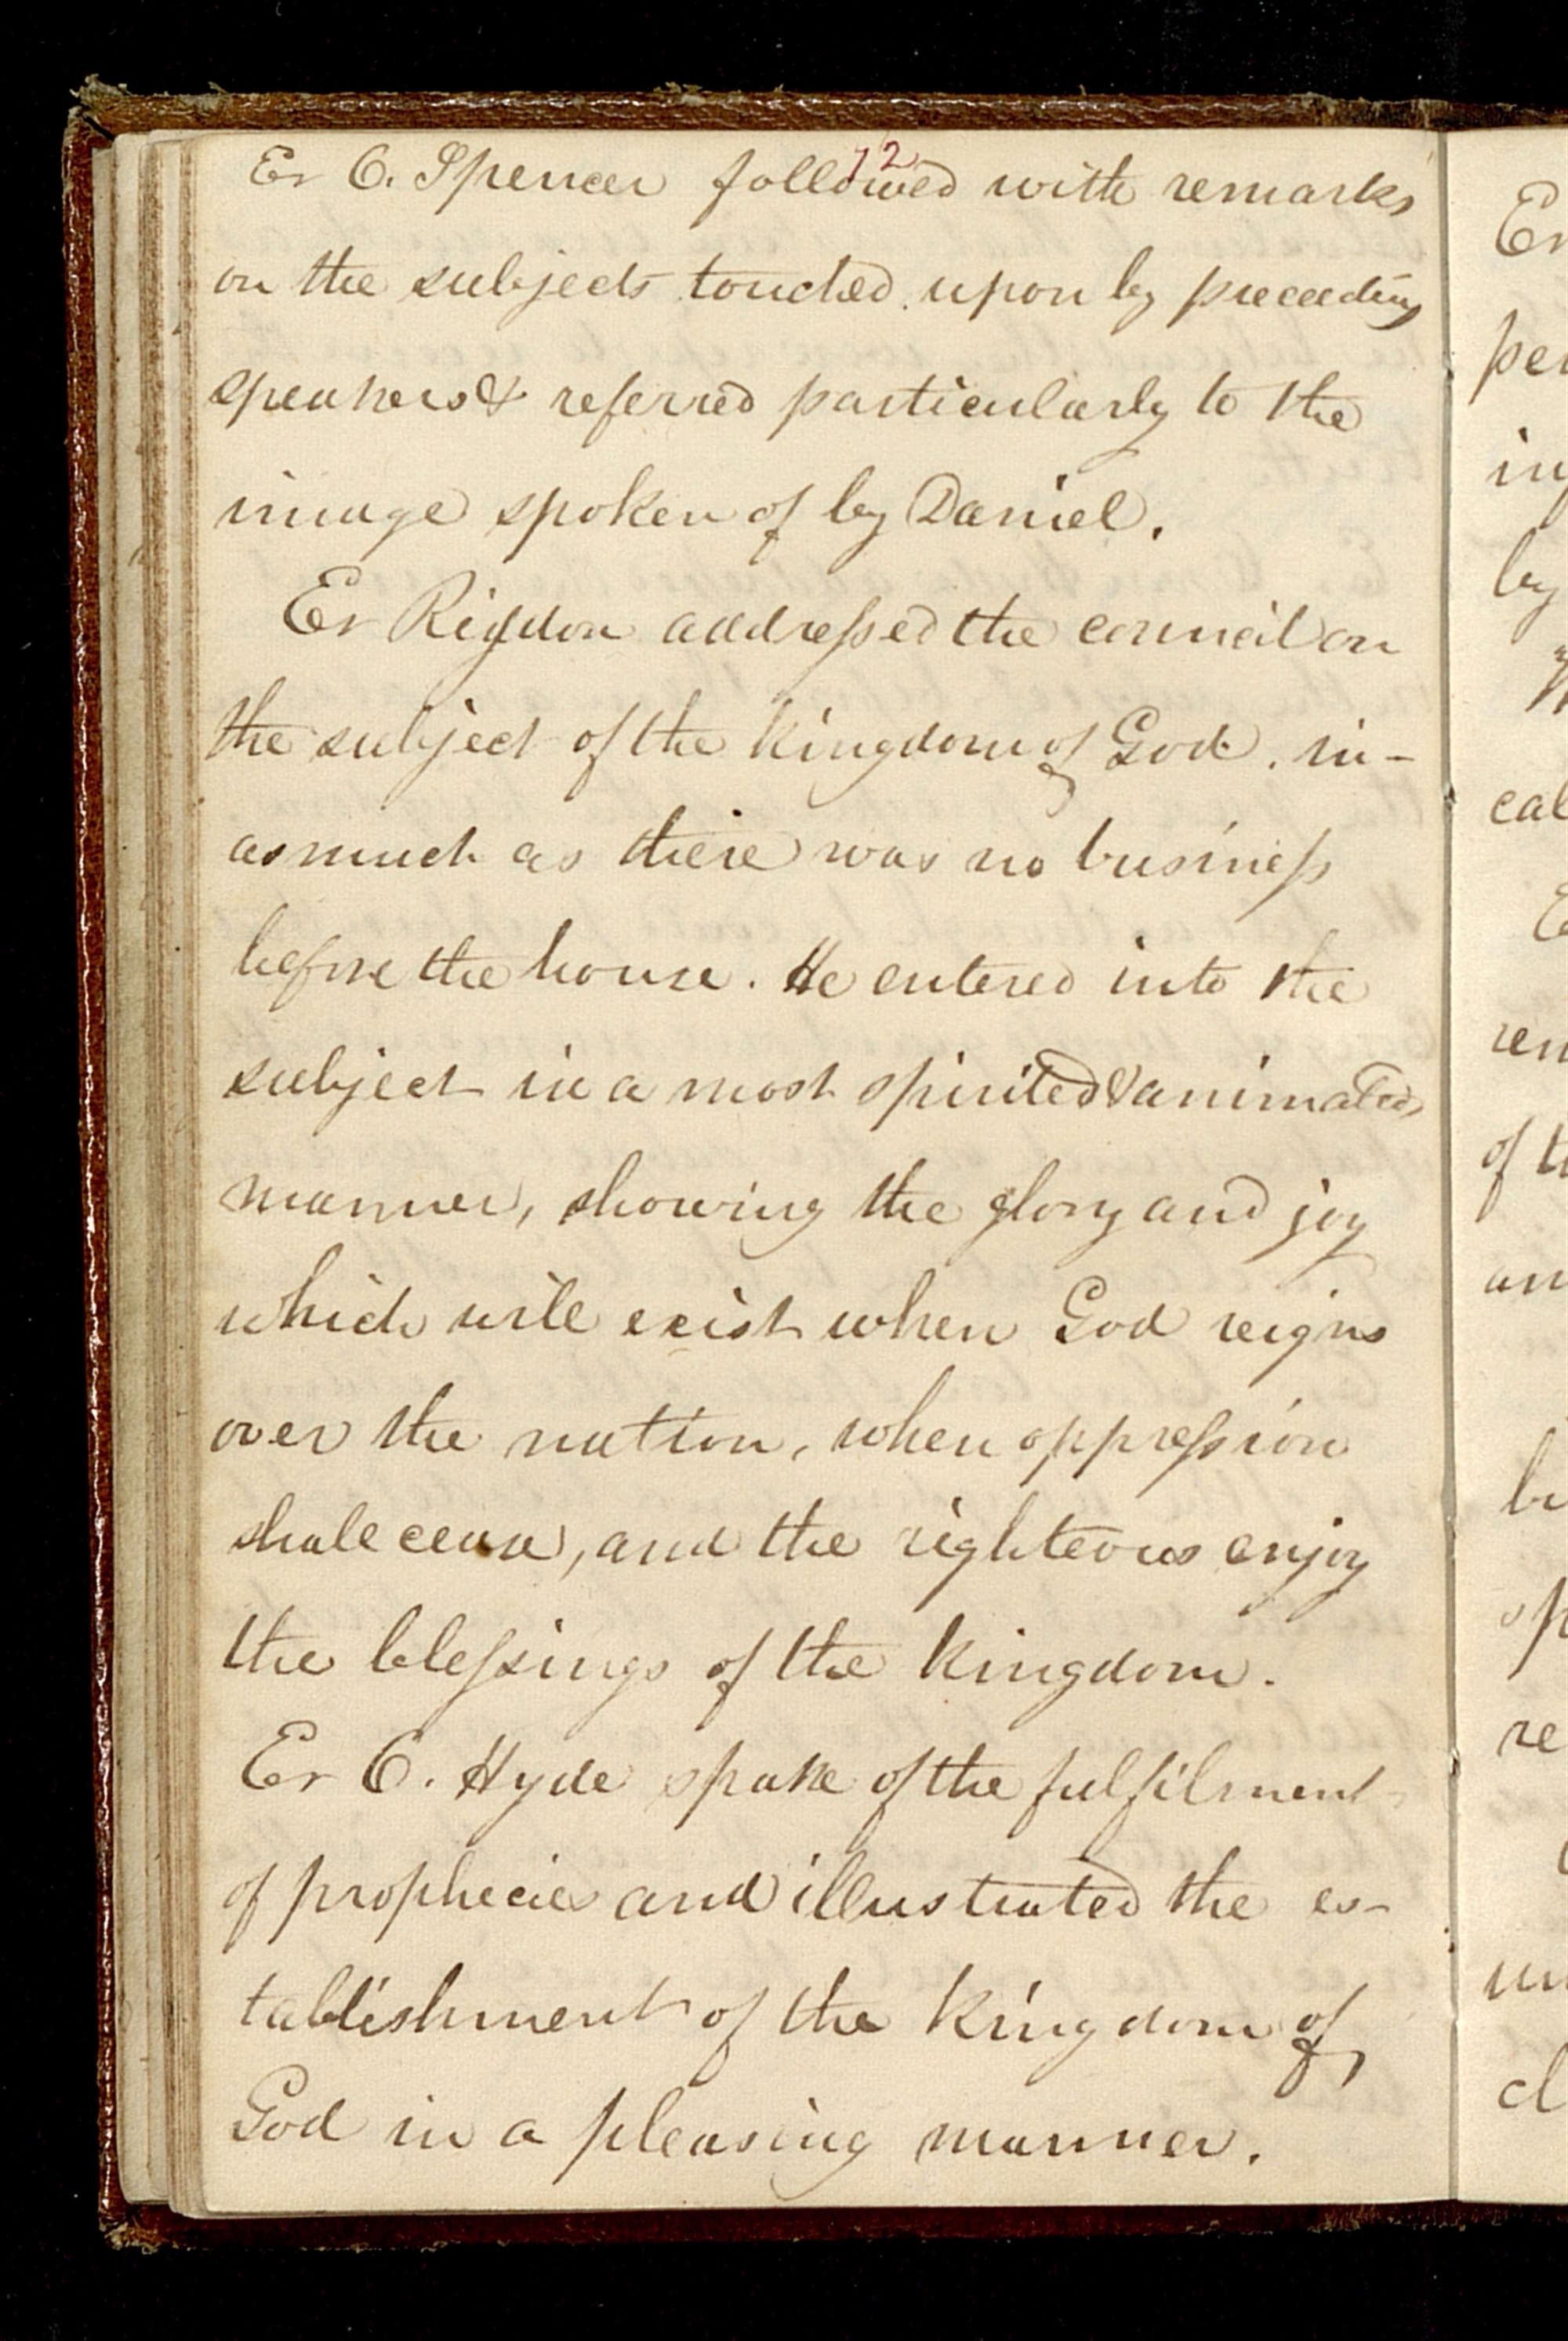 12
Er O. Spencer followed with remarks
on the subjects touched upon by preceeding
speakers & referred particularly to the
image spoken of by Daniel.
Er Rigdon addressed the council on
the subject of the kingdom of God. in-
asmuch as there was no business
before the house. He entered into the
subject in a most spirited & animated
manner, showing the glory and joy
which will exist when God reigns
over the nation, when oppression
shall cease, and the righteous enjoy
the blessings of the kingdom.
Er O. Hyde spake of the fulfilment
of prophecies and illustrated the es-
tablishment of the kingdom of
God in a pleasing manner.